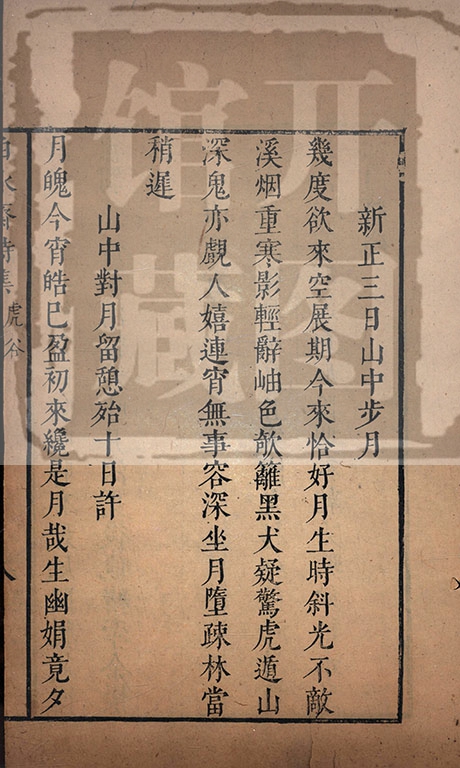 新正三日山中步月
幾度欲來空展期今來恰好月生時斜光不敵
溪烟重寒影輕辭岫色欹籬黑犬疑驚虎遁山
深鬼亦覷人嬉連宵無事容深坐月墮疎林當
稍遲
山中對月留憩殆十日許
月魄今宵皓已盈初來纔是月哉生幽娟竟夕
白水齋詩集 虎谷
開圖
館藏